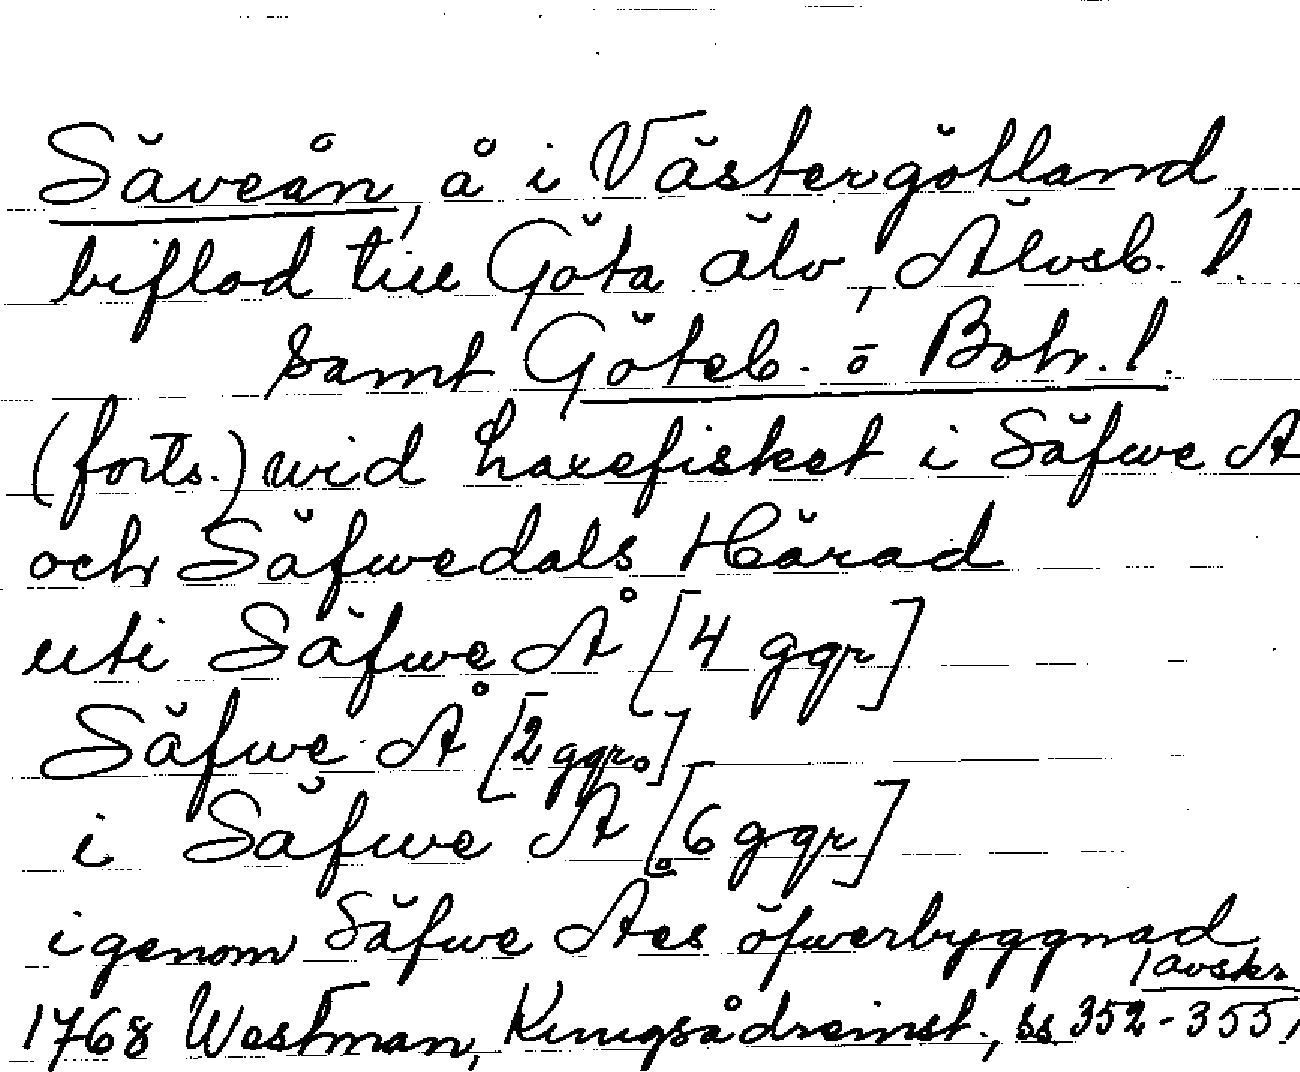 Säveån, å i Västergötland,
biflod till Göta älv, Älvsb. l.
samt Göteb. o Boh. l.
(forts.) wid Laxefisket i Säfwe A
och Säfwedals Härad
uti Säfwe Å [4 ggr]
Säfwe Å [2 ggr.]
i Säfwe Å [6 ggr]
igenom Säfwe Åes öfwerbyggnad
/avskr.
1768 Westman, Kungsådreinst., ss. 352-355,